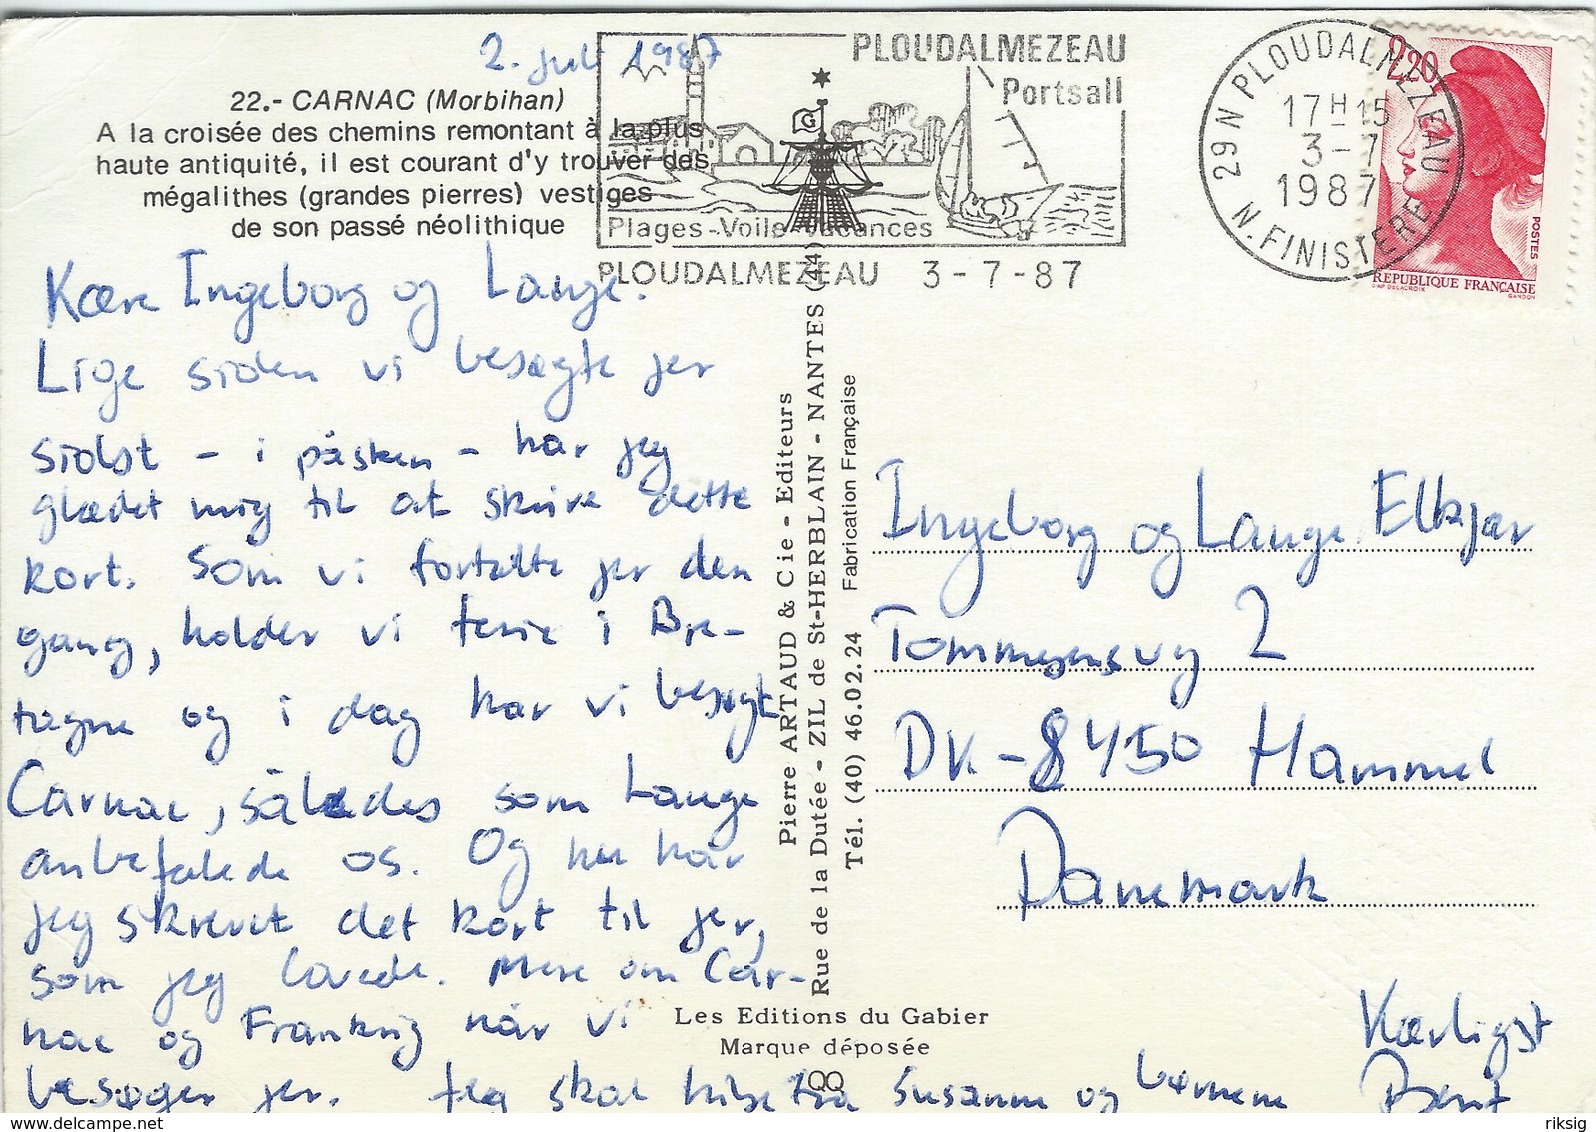 2. juli 1987
22.- CARNAC (Morbihan)
A la croisée des chemins remontant à la plus
haute antiquité, il est courant d'y trouver des
mégalithes (grandes pierres) vestiges
de son passé néolithique
PLOUDALMEZEAU
Portsall
Plages-Voile-Vacances
PLOUDALMEZEAU 3-7-87
29 N PLOUDALMEZEAU
17H15
3-7
1987
N. FINISTERE
2,20
POSTES
REPUBLIQUE FRANÇAISE
D'AP DELACROIX
GANDON
Kære Ingeborg og Lauge.
Lige siden vi besøgte jer
sidst - i påsken - har jeg
glædet mig til at skrive dette
kort. Som vi fortalte jer den
gang, holder vi ferie i Bre-
tagne og i dag har vi besøgt
Carnac, således som Lauge
anbefalede os. Og nu har
jeg skrevet det kort til jer,
som jeg lovede. Mere om Car-
nac og Frankrig når vi
besøger jer. Jeg skal hilse fra Susanne og børnene
Kærligst
Bent
Pierre ARTAUD & Cie - Editeurs
Rue de la Dutée - ZIL de St-HERBLAIN - NANTES (44)
Tél. (40) 46.02.24 Fabrication Française
Les Editions du Gabier
Marque déposée
Ingeborg og Lauge Elkjær
Tommesensvej 2
DK-8450 Hammel
Danemark
delcampe.net
riksig